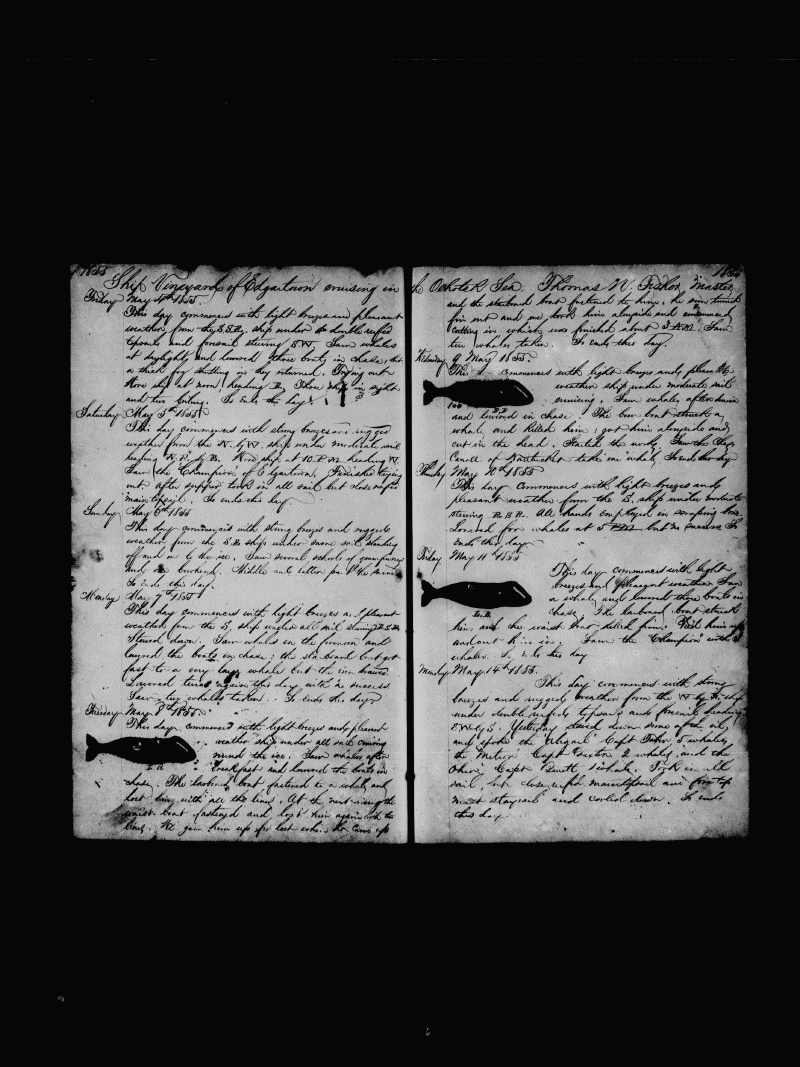 1855
Ship Vineyard of Edgartown cruising in
Friday May 4th 1855
This day commences with light breezes and pleasant
weather from the S.S.E. ship under double reefed
topsails and foresail steering S.W. Saw whales
at daylight and lowered three boats in chase, but
a thick fog shutting in they returned. Trying out
Wore ship at noon, heading E. Three ships in sight
and two cutting. So ends this day.
Saturday May 5th 1855
This day commences with strong breezes and rugged
weather from the N. by W. ship under moderate sail
heading Wore ship at 10 P.M. heading W.
Saw the Champion of Edgartown. Finished trying
out. After supper took in all sail but close reefed
main topsail. So ends this day.
Sunday May 6th 1855
This day commences with strong breezes and rugged
weather from the ship under some sail standing
off and on to the ice. Saw several schools of
and one bowhead. Middle and latter part the same
So ends this day.
Monday May 7th 1855
This day commences with light breezes and pleasant
weather from the S, ship under all sail steering E.S.E.
Stowed down. Saw whales in the forenoon and
lowered the boats in chase; the starboard boat got
fast to a very large whale but the iron
Lowered twice again this day with no success
Saw whales taken. So ends this day
Tuesday May 8th 1855
This day commences with light breezes and pleasant
weather ship under all sail cruising
round the ice. Saw whales after
breakfast and lowered the boats in
chase. The larboard boat fastened to a whale and
lost him with all the line. At the next rising the
waist boat fastened and lost him again with the
line. We gave him up for lost when he came up
1855
the Ochotsk Sea. Thomas N. Fisher, Master
and the starboard boat fastened to him, he soon turned
fin out and we took him alongside and commenced
cutting in which was finished about 3 A.M. Saw
two whales taken. So ends this day.
Wednesday 9 May 1855.
This commences with light breezes and pleasant
weather ship under moderate sail
cruising. Saw whales after dinner
and lowered in chase. The bow boat struck a
whale and killed him; got him alongside and
cut in the head. Started the works. Saw the Chas
Carroll of Nantucket take one whale. So ends this day
Thursday May 10th 1855
This day commences with light breezes and
pleasant weather from the S. ship under moderate sail
steering All hands employed in scraping bone.
Lowered for whales at 5 P.M. but no success So
ends this day
Friday May 11th 1855
This day commences with light
breezes and pleasant weather. Saw
a whale and lowered three boats in
chase. The larboard boat struck
him and the waist boat killed him. Took him up
and cut him in. Saw the "Champion" with a
whale. So ends this day
Monday May 14th 1855.
This day commences with strong
breezes and rugged weather from the ship
under double reefed topsails and foresail heading
E. by S. Yesterday stowed down some of the oil,
and spoke the Capt Fisher 5 whales,
the Metior Capt 2 whales, and the
Capt 1 whale. Took in all
sail, but close reefed maintopsail and fore top
mast staysail and coiled down. So ends
this day